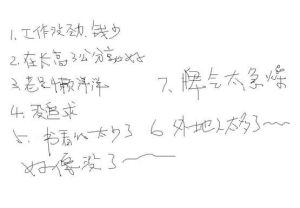 1.工作没劲.钱少
2.在长高3公分就好
3.老是懒洋洋
4.爱追求
5.书看的太少了
6.外地人太多了~~
7、脾气太急燥
好像没了~~~